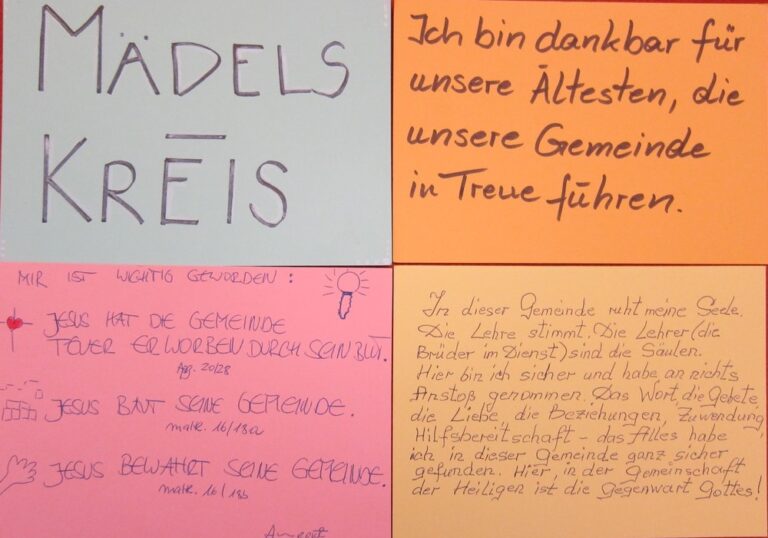 MÄDELS
KREIS
Ich bin dankbar für
unsere Ältesten, die
unsere Gemeinde
in Treue führen.
MIR IST WICHTIG GEWORDEN:
JESUS HAT DIE GEMEINDE
TEUER ERWORBEN DURCH SEIN BLUT.
Apg. 20/28
JESUS BAUT SEINE GEMEINDE.
matth. 16/18a
JESUS BEWAHRT SEINE GEMEINDE.
matth. 16/18b
In dieser Gemeinde ruht meine Seele.
Die Lehre stimmt. Die Lehrer (die
Brüder im Dienst) sind die Säulen.
Hier bin ich sicher und habe an nichts
Anstoß genommen. Das Wort, die Gebete
die Liebe, die Beziehungen, Zuwendung,
Hilfsbereitschaft – das Alles habe
ich in dieser Gemeinde ganz sicher
gefunden. Hier, in der Gemeinschaft
der Heiligen ist die Gegenwart Gottes!